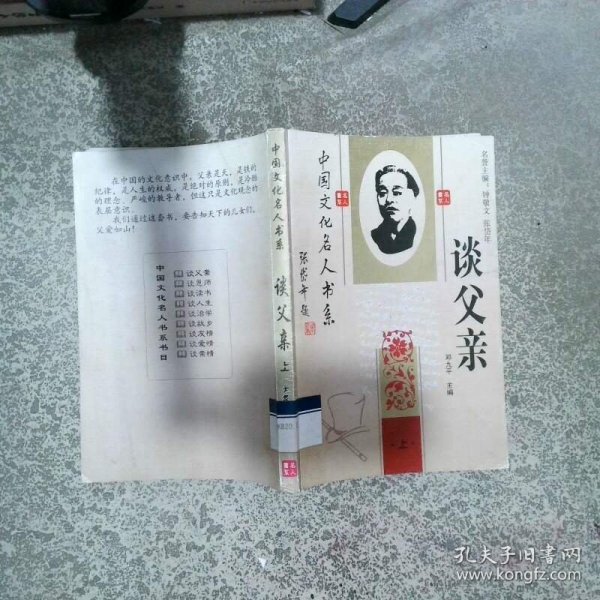 在中国的文化意识中，父亲是天，是铁的
纪律，是人生的权威，是绝对的原则，是冷酷
的理念、严峻的教导者，但这只是文化观念的
表层意识。
我们通过这套书，要告知天下的儿女们，
父爱如山！
中国文化名人书系书目
谈父亲
谈恩师
谈读书
谈人生
谈治学
谈故乡
谈友情
谈爱情
谈亲情
中国文化名人书系
谈父亲
上
名人
书系
中国文化名人书系
张岱年题
名人
书系
名誉主编：钟敬文 张岱年
谈父亲
邓九平 主编
上
孔夫子旧书网
www.kongfz.com